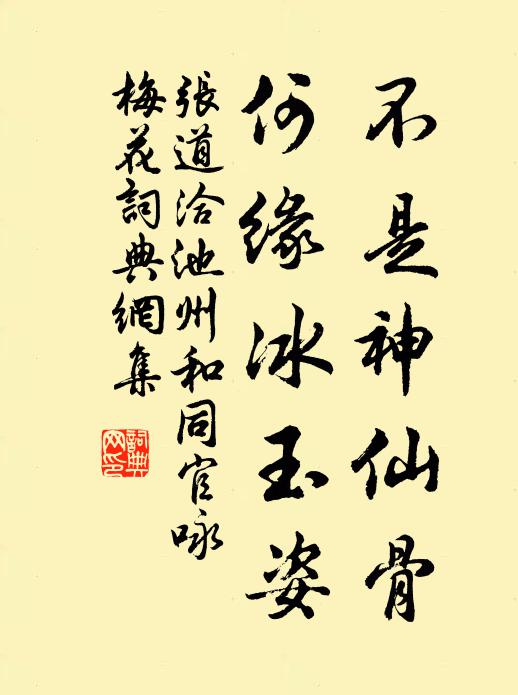 不是神仙骨
何緣冰玉姿
張道洽池州和同官咏
梅花詞典網集
詞典
网印